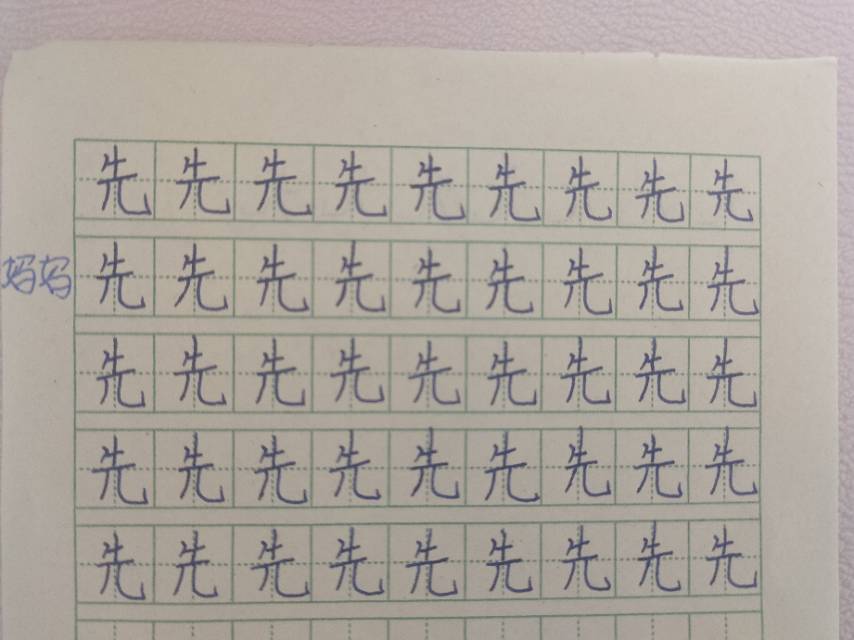 先先先先先先先先先
妈妈 先先先先先先先先先
先先先先先先先先先
先先先先先先先先先
先先先先先先先先先